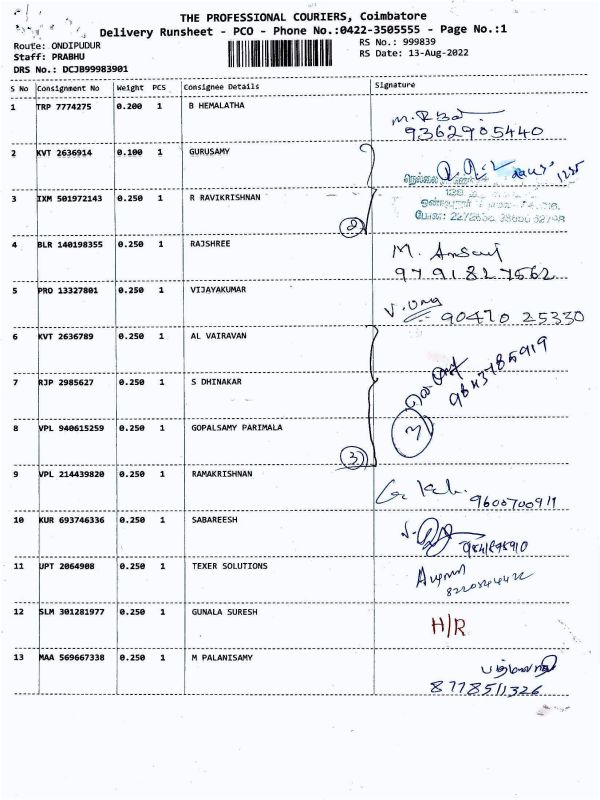 THE PROFESSIONAL COURIERS, Coimbatore
Delivery Runsheet - PCO - Phone No.:0422-3505555 - Page No.:1
Route: ONDIPUDUR
RS No.: 999839
Staff: PRABHU
RS Date: 13-Aug-2022
DRS No.: DCJB99983901
S No Consignment No Weight PCS Consignee Details Signature
1 TRP 7774275 0.200 1 B HEMALATHA
9362905440
2 KVT 2636914 0.100 1 GURUSAMY
3 IXM 501972143 0.250 1 R RAVIKRISHNAN
2
4 BLR 140198355 0.250 1 RAJSHREE M. Ansari
9791827662
5 PRO 13327801 0.250 1 VIJAYAKUMAR
90470 25330
6 KVT 2636789 0.250 1 AL VAIRAVAN
9843785919
7 RJP 2985627 0.250 1 S DHINAKAR
8 VPL 940615259 0.250 1 GOPALSAMY PARIMALA
3
3
9 VPL 214439820 0.250 1 RAMAKRISHNAN
9600700911
10 KUR 693746336 0.250 1 SABAREESH
11 UPT 2064908 0.250 1 TEXER SOLUTIONS
12 SLM 301281977 0.250 1 GUNALA SURESH H/R
13 MAA 569667338 0.250 1 M PALANISAMY
8778511326